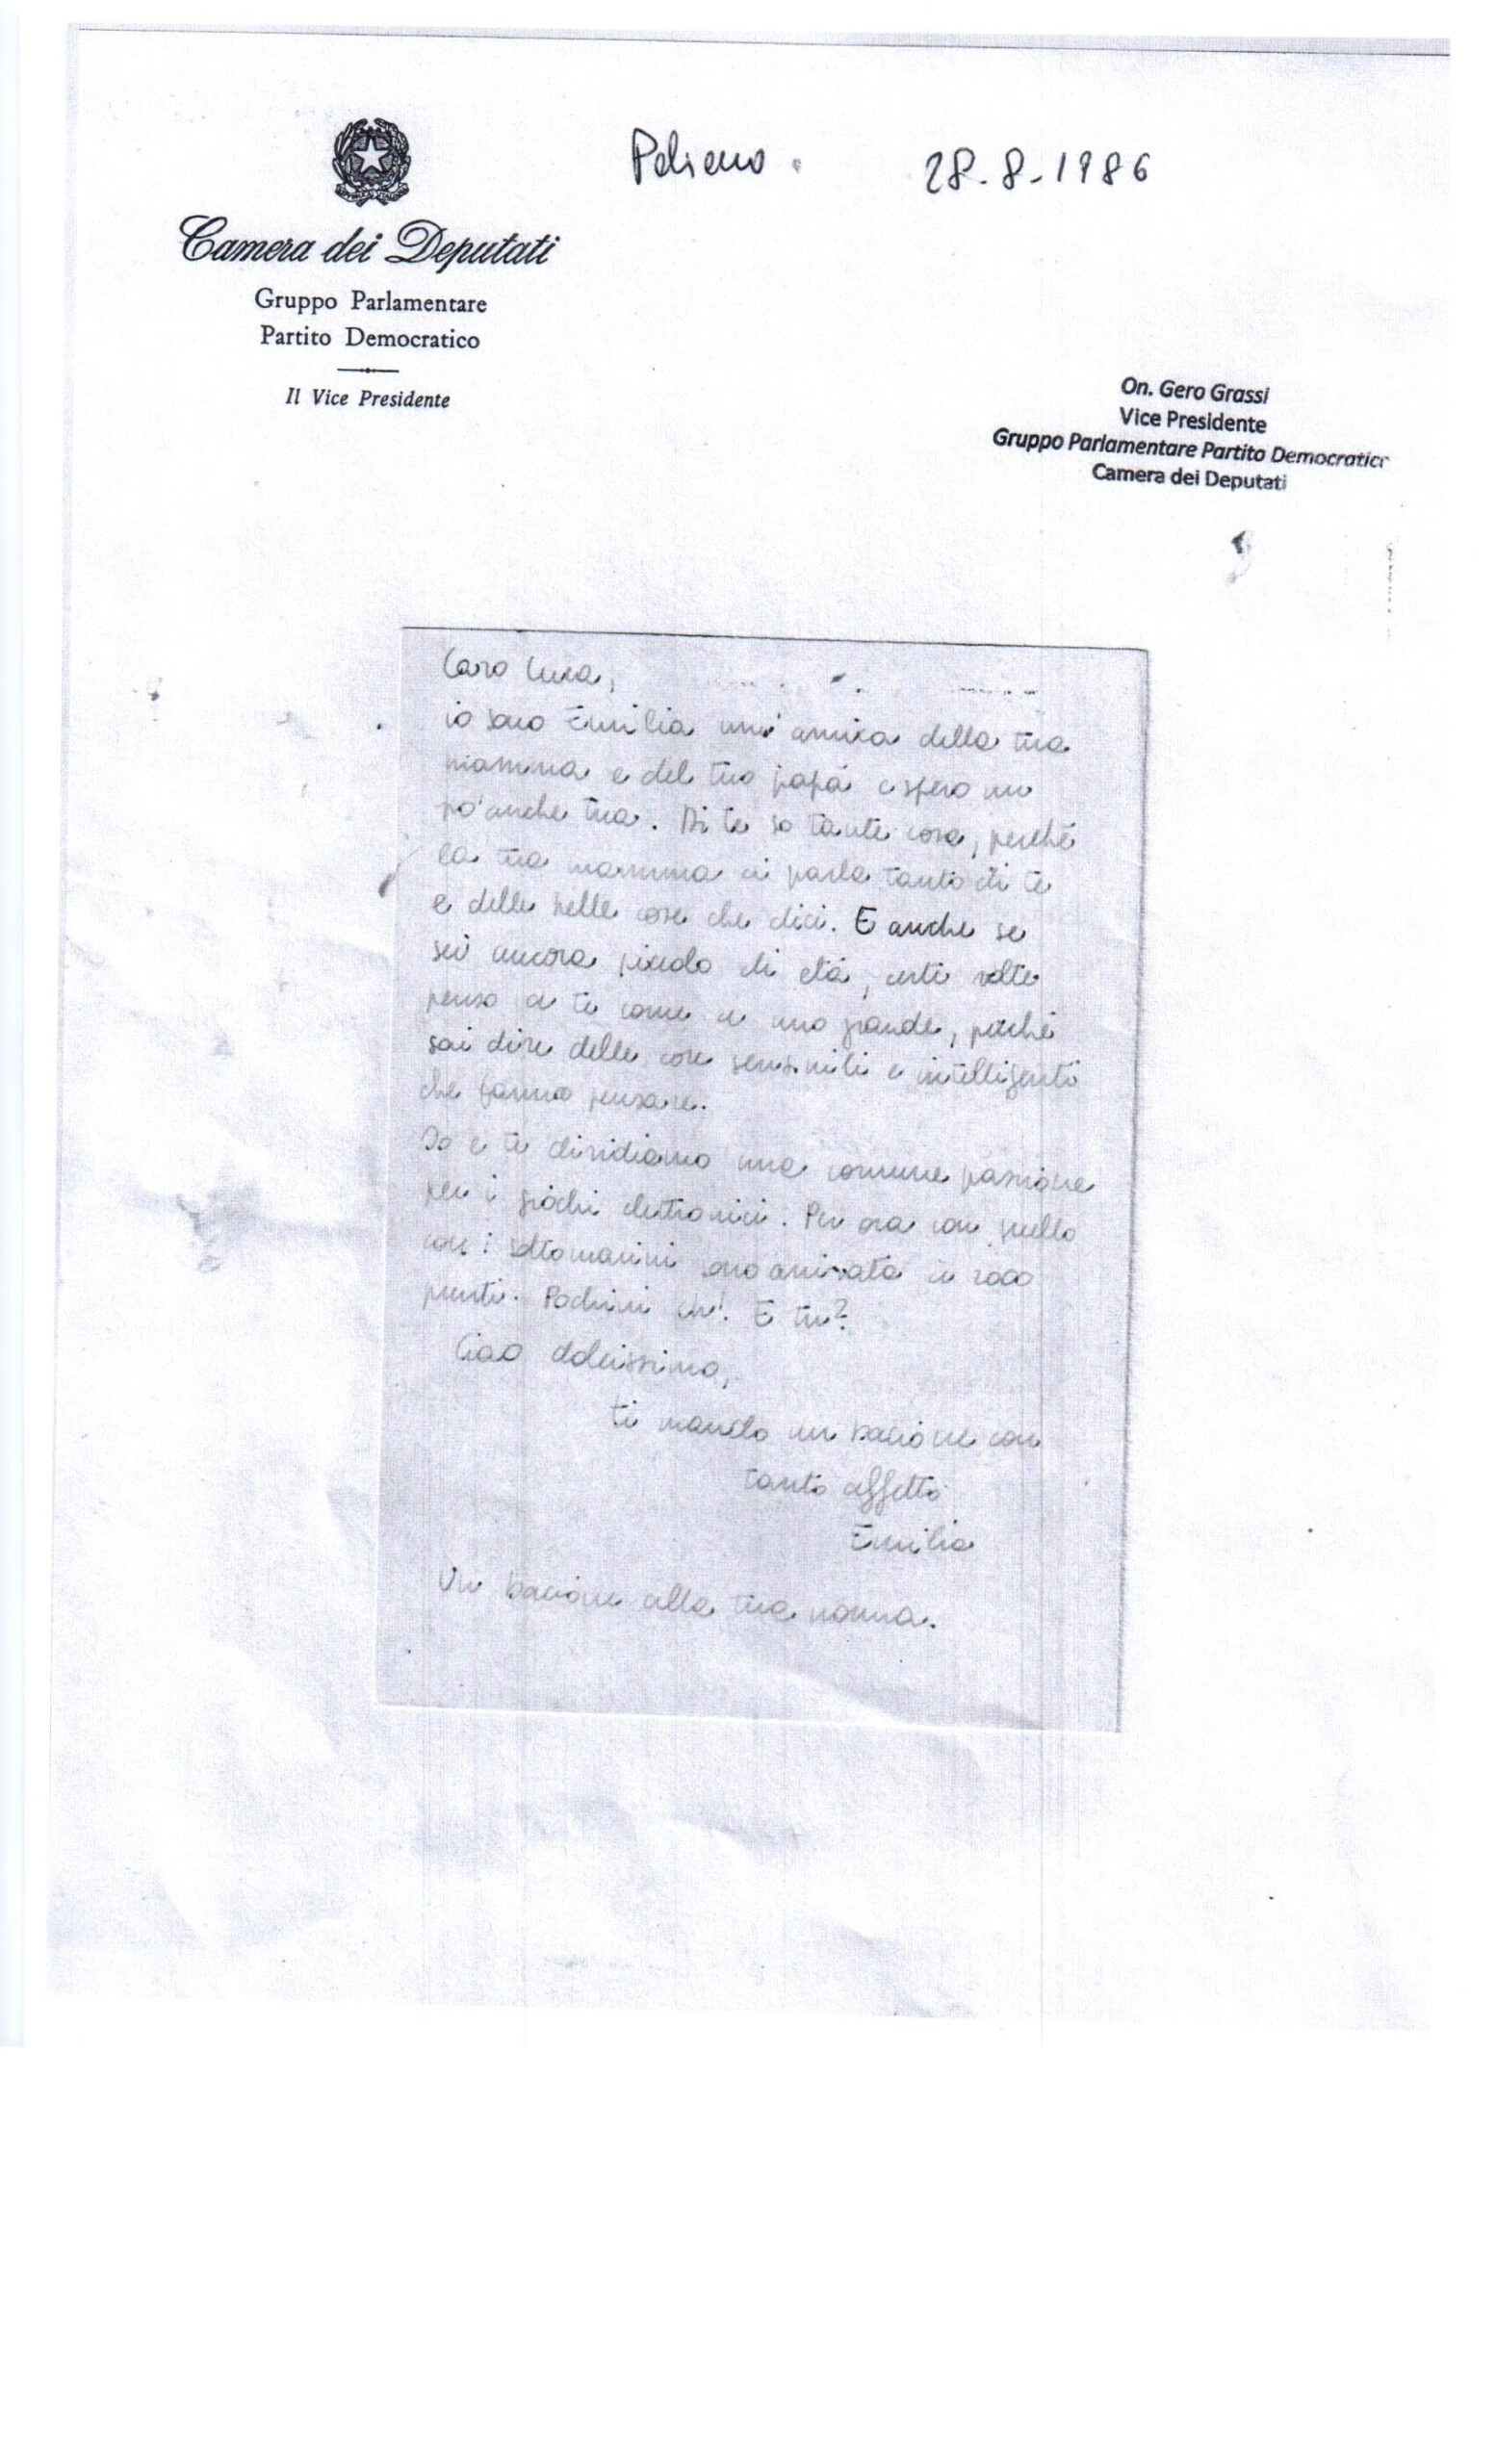 28.8.1986
Camera dei Deputati
Gruppo Parlamentare
Partito Democratico
Il Vice Presidente
On. Gero Grassi
Vice Presidente
Gruppo Parlamentare Partito Democratico
Camera dei Deputati
Caro Luca,
io sono Emilia un'amica della tua
mamma e del tuo papà e spero un
po' anche tua. Di te so tante cose, perché
la tua mamma ci parla tanto di te
e delle belle cose che dici. E anche se
sei ancora piccolo di età, certe volte
penso a te come a uno grande, perché
sai dire delle cose sensibili e intelligenti
che fanno pensare.
Io e te dividiamo una comune passione
per i giochi elettronici. Per ora con quello
con i sottomarini sono arrivata a 2000
punti. Pochini eh! E tu?
Ciao dolcissimo,
ti mando un bacione con
tanto affetto
Emilia
Un bacione alla tua nonna.